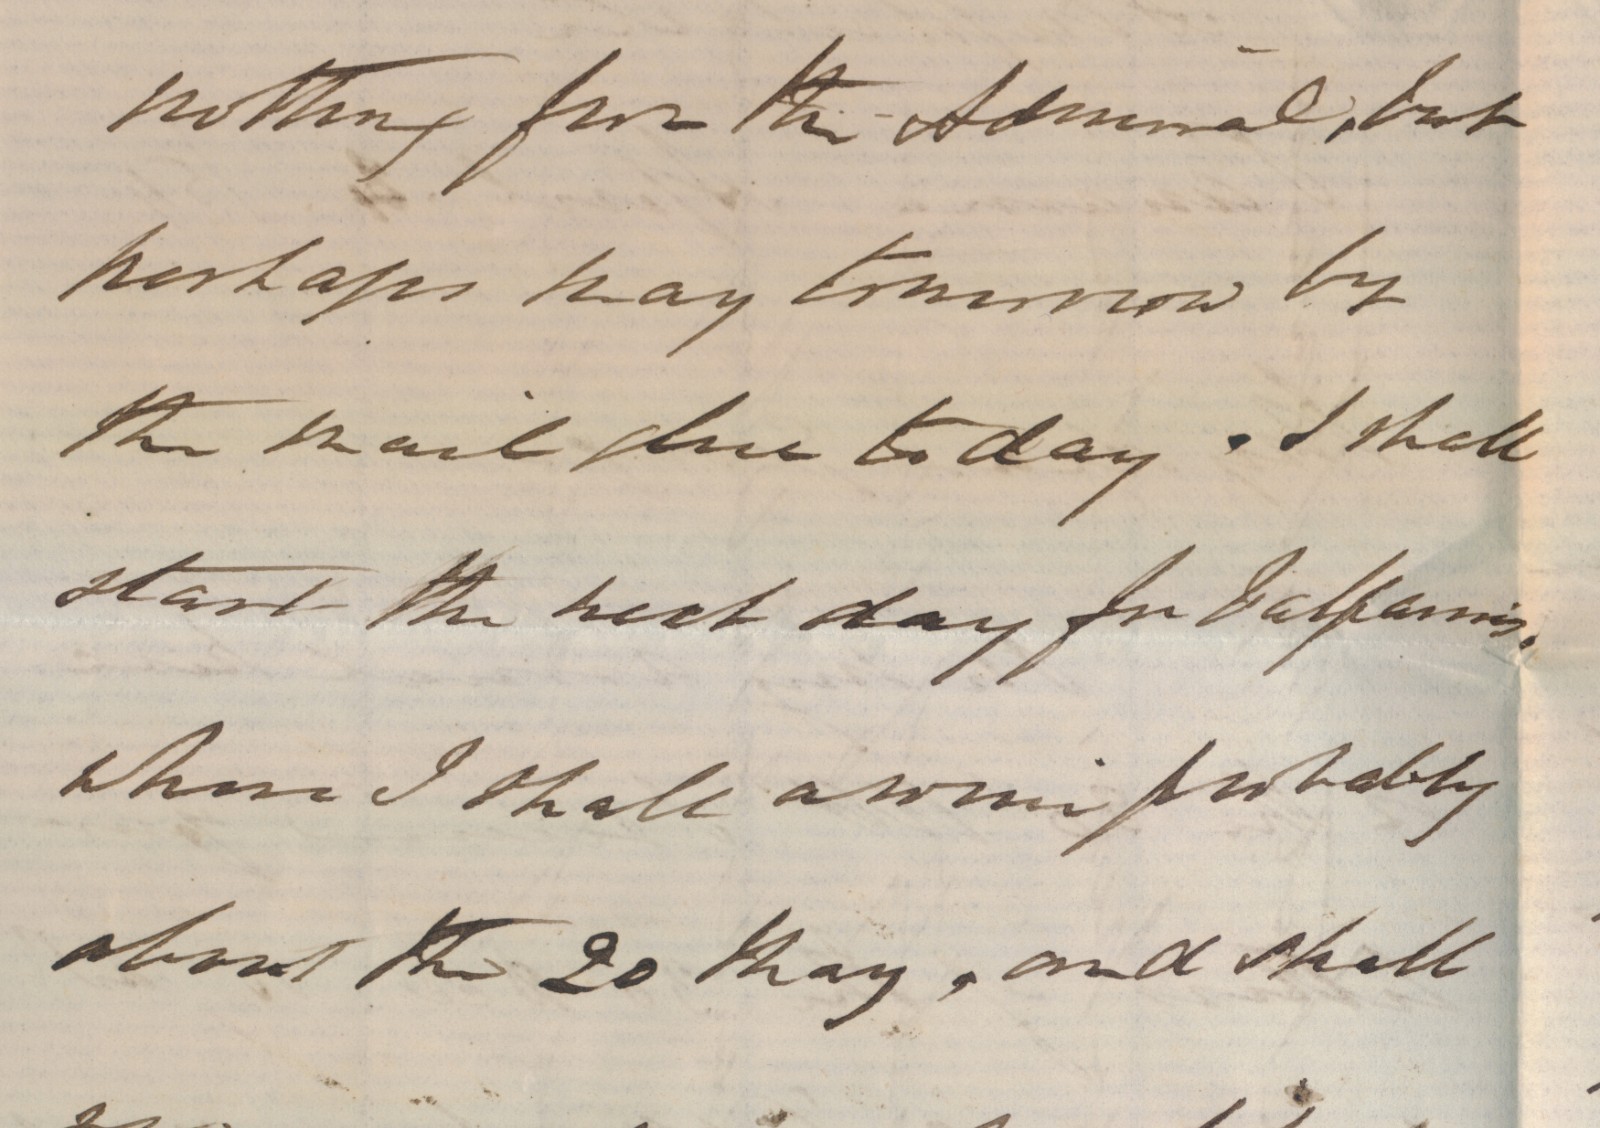 nothing from the Admiral, but
perhaps may tomorrow by
the mail due today. I shall
start the next day for Valparaiso,
where I shall arrive probably
about the 20 May, and shall